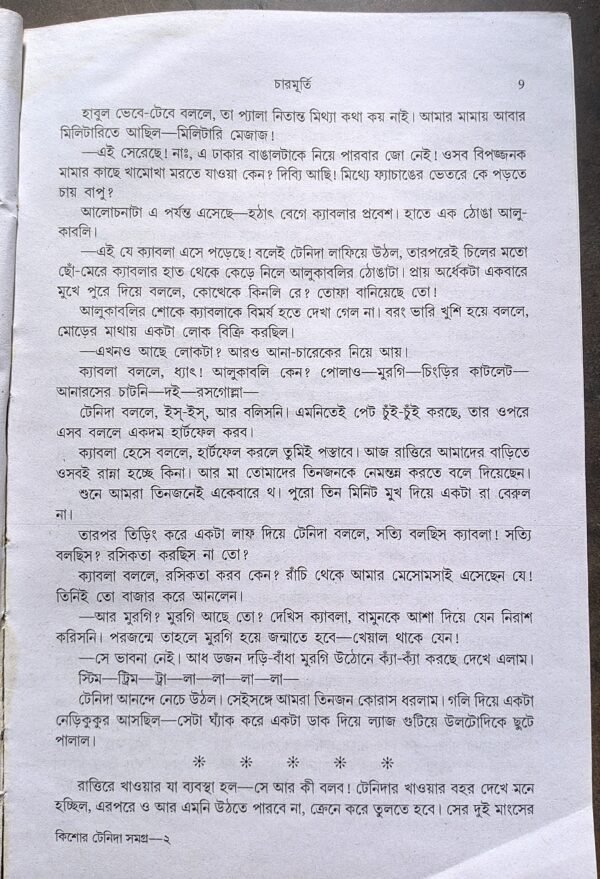 চারমূর্তি 9
হাবুল ভেবে-টেবে বললে, তা প্যালা নিতান্ত মিথ্যা কথা কয় নাই। আমার মামায় আবার
মিলিটারিতে আছিল—মিলিটারি মেজাজ!
—এই সেরেছে! নাঃ, এ ঢাকার বাঙালটাকে নিয়ে পারবার জো নেই! ওসব বিপজ্জনক
মামার কাছে খামোখা মরতে যাওয়া কেন? দিব্যি আছি! মিথ্যে ফ্যাচাঙের ভেতরে কে পড়তে
চায় বাপু?
আলোচনাটা এ পর্যন্ত এসেছে—হঠাৎ বেগে ক্যাবলার প্রবেশ। হাতে এক ঠোঙা আলু-
কাবলি।
—এই যে ক্যাবলা এসে পড়েছে! বলেই টেনিদা লাফিয়ে উঠল, তারপরেই চিলের মতো
ছোঁ-মেরে ক্যাবলার হাত থেকে কেড়ে নিলে আলুকাবলির ঠোঙাটা। প্রায় অর্ধেকটা একবারে
মুখে পুরে দিয়ে বললে, কোত্থেকে কিনলি রে? তোফা বানিয়েছে তো!
আলুকাবলির শোকে ক্যাবলাকে বিমর্ষ হতে দেখা গেল না। বরং ভারি খুশি হয়ে বললে,
মোড়ের মাথায় একটা লোক বিক্রি করছিল।
—এখনও আছে লোকটা? আরও আনা-চারেকের নিয়ে আয়।
ক্যাবলা বললে, ধ্যাৎ! আলুকাবলি কেন? পোলাও—মুরগি—চিংড়ির কাটলেট—
আনারসের চাটনি—দই—রসগোল্লা—
টেনিদা বললে, ইস্-ইস্, আর বলিসনি। এমনিতেই পেট চুঁই-চুঁই করছে, তার ওপরে
এসব বললে একদম হার্টফেল করব।
ক্যাবলা হেসে বললে, হার্টফেল করলে তুমিই পস্তাবে। আজ রাত্তিরে আমাদের বাড়িতে
ওসবই রান্না হচ্ছে কিনা। আর মা তোমাদের তিনজনকে নেমন্তন্ন করতে বলে দিয়েছেন।
শুনে আমরা তিনজনেই একেবারে থ। পুরো তিন মিনিট মুখ দিয়ে একটা রা বেরুল
না।
তারপর তিড়িং করে একটা লাফ দিয়ে টেনিদা বললে, সত্যি বলছিস ক্যাবলা! সত্যি
বলছিস? রসিকতা করছিস না তো?
ক্যাবলা বললে, রসিকতা করব কেন? রাঁচি থেকে আমার মেসোমসাই এসেছেন যে!
তিনিই তো বাজার করে আনলেন।
—আর মুরগি? মুরগি আছে তো? দেখিস ক্যাবলা, বামুনকে আশা দিয়ে যেন নিরাশ
করিসনি। পরজন্মে তাহলে মুরগি হয়ে জন্মাতে হবে—খেয়াল থাকে যেন!
—সে ভাবনা নেই। আধ ডজন দড়ি-বাঁধা মুরগি উঠোনে ক্যাঁ-ক্যাঁ করছে দেখে এলাম।
স্টিম—ট্রিম—ট্রা—লা—লা—লা—লা—
টেনিদা আনন্দে নেচে উঠল। সেইসঙ্গে আমরা তিনজন কোরাস ধরলাম। গলি দিয়ে একটা
নেড়িকুকুর আসছিল—সেটা ঘ্যাঁক করে একটা ডাক দিয়ে ল্যাজ গুটিয়ে উলটোদিকে ছুটে
পালাল।
* * * * *
রাত্তিরে খাওয়ার যা ব্যবস্থা হল—সে আর কী বলব! টেনিদার খাওয়ার বহর দেখে মনে
হচ্ছিল, এরপরে ও আর এমনি উঠতে পারবে না, ক্রেনে করে তুলতে হবে। সের দুই মাংসের
কিশোর টেনিদা সমগ্র—২